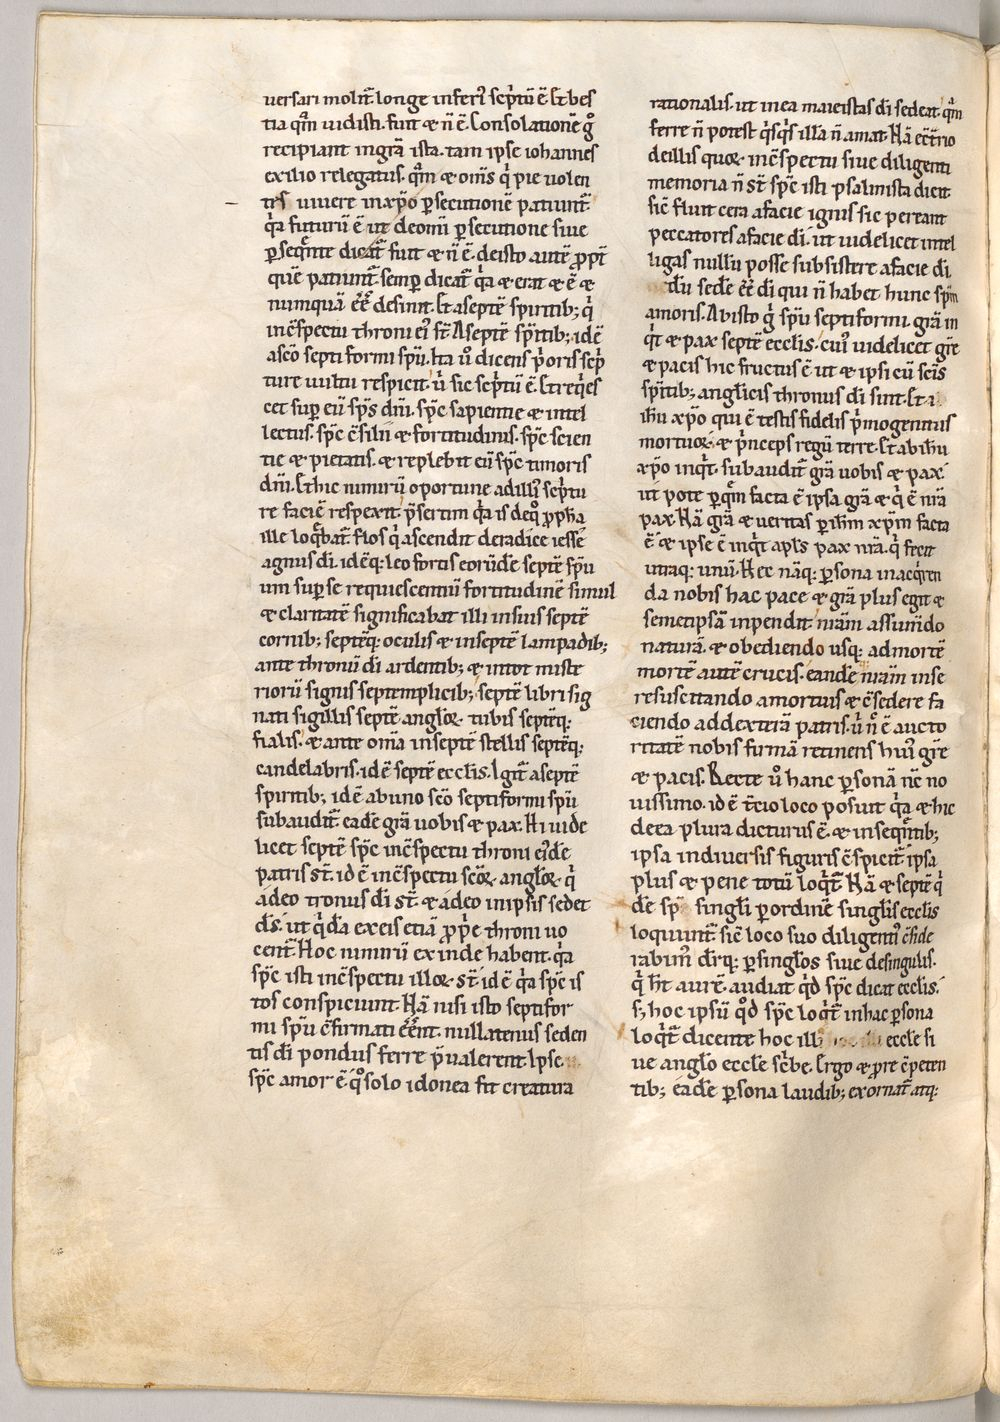 versari molit̄. longe inferi᷒ sc̄ptū ē. Et bes
tia qm̄ uidisti. fuit & n̄ ē. Consolationē gͦ
recipiant in grā ista. tam ipse iohannes
exilio relegatus. qm̄ & om̄s qͥ pie uolen
tes uiuere in xp̄o ꝑsecutionē patiunt̄
qͣ futurū ē ut de omi ꝑsecutione siue
ꝑseqn̄te dicat̄ fuit & n̄ ē. de isto autē ꝓpt̄
quē patiunt̄. semꝑ dicat̄ qͣ & erat & ē &
numquā ēē desinit. Et a septē spiritib; qͥ
in c̄spectu throni ei᷒ st̄. A septē sp̄itib; idē
a sc̄o septiformi sp̄u. Ita u͛o dicens p̄oris sc̄p
ture uultu respicit. u͛ sic sc̄ptū ē. Et reqͥes
cet suꝑ eū sp̄s dn̄i. sp̄c sapientie & intel
lectus. sp̄c c̄silii & fortitudinis. sp̄c scien
tie & pietatis. & replebit eū sp̄c timoris
dn̄i. Et hic nimirū oportune ad illā sc̄ptu
re faciē respexit. p̄sertim qͣ is de qͦ ꝓph̄a
ille loqͣbat̄. flos qͥ ascendit de radice iesse
agnus dī. idēq: leo fortis eorūdē septē sp̄u
um suꝑ se requiescentiū fortitudinē simul
& claritatē significabat illi in suis septē
cornib; septēq: oculis & in septē lampadib;
ante thronū dī ardentib; & in tot miste
riorū signis septemplicib; septē libri sig
nati sigillis septē angłoꝝ. tubis septēq:
fialis. & ante om̄ia in septē stellis septēq:
candelabris. idē septē ecclīs. Igit̄ a septē
spiritib; idē ab uno sc̄o septiformi sp̄u
subaudit̄. eadē grā uobis & pax. Hi uide
licet septē sp̄c in c̄spectu throni ei᷒dē
patris st̄. id ē in c̄spectu sc̄oꝝ angłoꝝ. qͥ
adeo tronus dī st̄. & adeo in ipsis sedet
ds̄. ut qͥdā ex eis etiā ꝓp̄e throni uo
cent̄. Hoc nimirū ex inde habent. qͣ
sp̄c isti in c̄spectu illoꝝ st̄. id ē qͣ sp̄c is
tos conspiciunt. Nā nisi isto septifor
mi sp̄u c̄firmati ēēnt. nullatenus seden
tis dī pondus ferre p̄ualerent. Ipse
sp̄c amor ē qͦ solo idonea fit creatura
rationalis. ut in ea maiestas dī sedeat. qͣm
ferre n̄ potest qͥsqͥs illā n̄ amat. Nā ec̄trio
de illis quoꝝ in c̄spectu siue diligenti
memoria n̄ st̄ sp̄c isti psalmista dicit
sic̄ fluit cera a facie ignis sic pereant
peccatores a facie dī. ut uidelicet intel
ligas nullū posse subsistere a facie dī
dū sedē ēē dī qui n̄ habet hunc sp̄m
amoris. Ab isto gͦ sp̄u septiformi. grā in
qͥt & pax septē ecclīs. cui᷒ uidelicet grē
& pacis hic fructus ē ut & ipsi cū sc̄is
sp̄itib; anglicis thronus dī sint. Et a
ih̄u xp̄o qui ē testis fidelis p̄mogenitus
mortuoꝝ. & p̄nceps regū terre. Et ab ih̄u
xp̄o inqͥt. subaudit̄ grā uobis & pax.
ut pote ꝑ qͤm facta ē ipsa grā & qͥ ē nr̄a
pax. Nā grā & ueritas ꝑ ih̄m xp̄m facta
ē. & ipse ē inqͥt apl̄s pax nr̄a. qͥ fecit
utraq: unū. Hec nāq: ꝑsona in acqͥren
da nobis hac pace & grā plus egit &
semetipsā inpendit. nr̄am assumēdo
naturā. & obediendo usq: ad mortē
mortē autē crucis. eandē nr̄am in se
resuscitando a mortuis & c̄sedere fa
ciendo ad dexterā patris. u͛ nͦ ē aucto
ritatē nobis firmā retinens hui᷒ grē
& pacis. Recte u͛o hanc ꝑsonā nc̄ no
uissimo. id ē t̄cio loco posuit qͣ & hic
de ea plura dicturus ē. & in seqn̄tib;
ipsa in diuersis figuris c̄spicit̄. ipsa
plus & pene totū loqͥt̄. Nā & septē qͥ
dē sp̄c singłi ꝑ ordinē singłis ecclīs
loquunt̄. sic̄ loco suo diligenti᷒ c̄side
rabim᷒ dr̄q: ꝑ singłos siue de singulis.
qͥ ht̄ aurē. audiat qͥd sp̄c dicat ecclīs.
s; hoc ipsū qͦd sp̄c loqͥt̄ in hac ꝑsona
loqͥt̄ dicente hoc illi ecclē si
ue angło ecclē sc̄be. Ergo & p̄re c̄peten
tib; eadē ꝑsona laudib; exornat̄ atq: